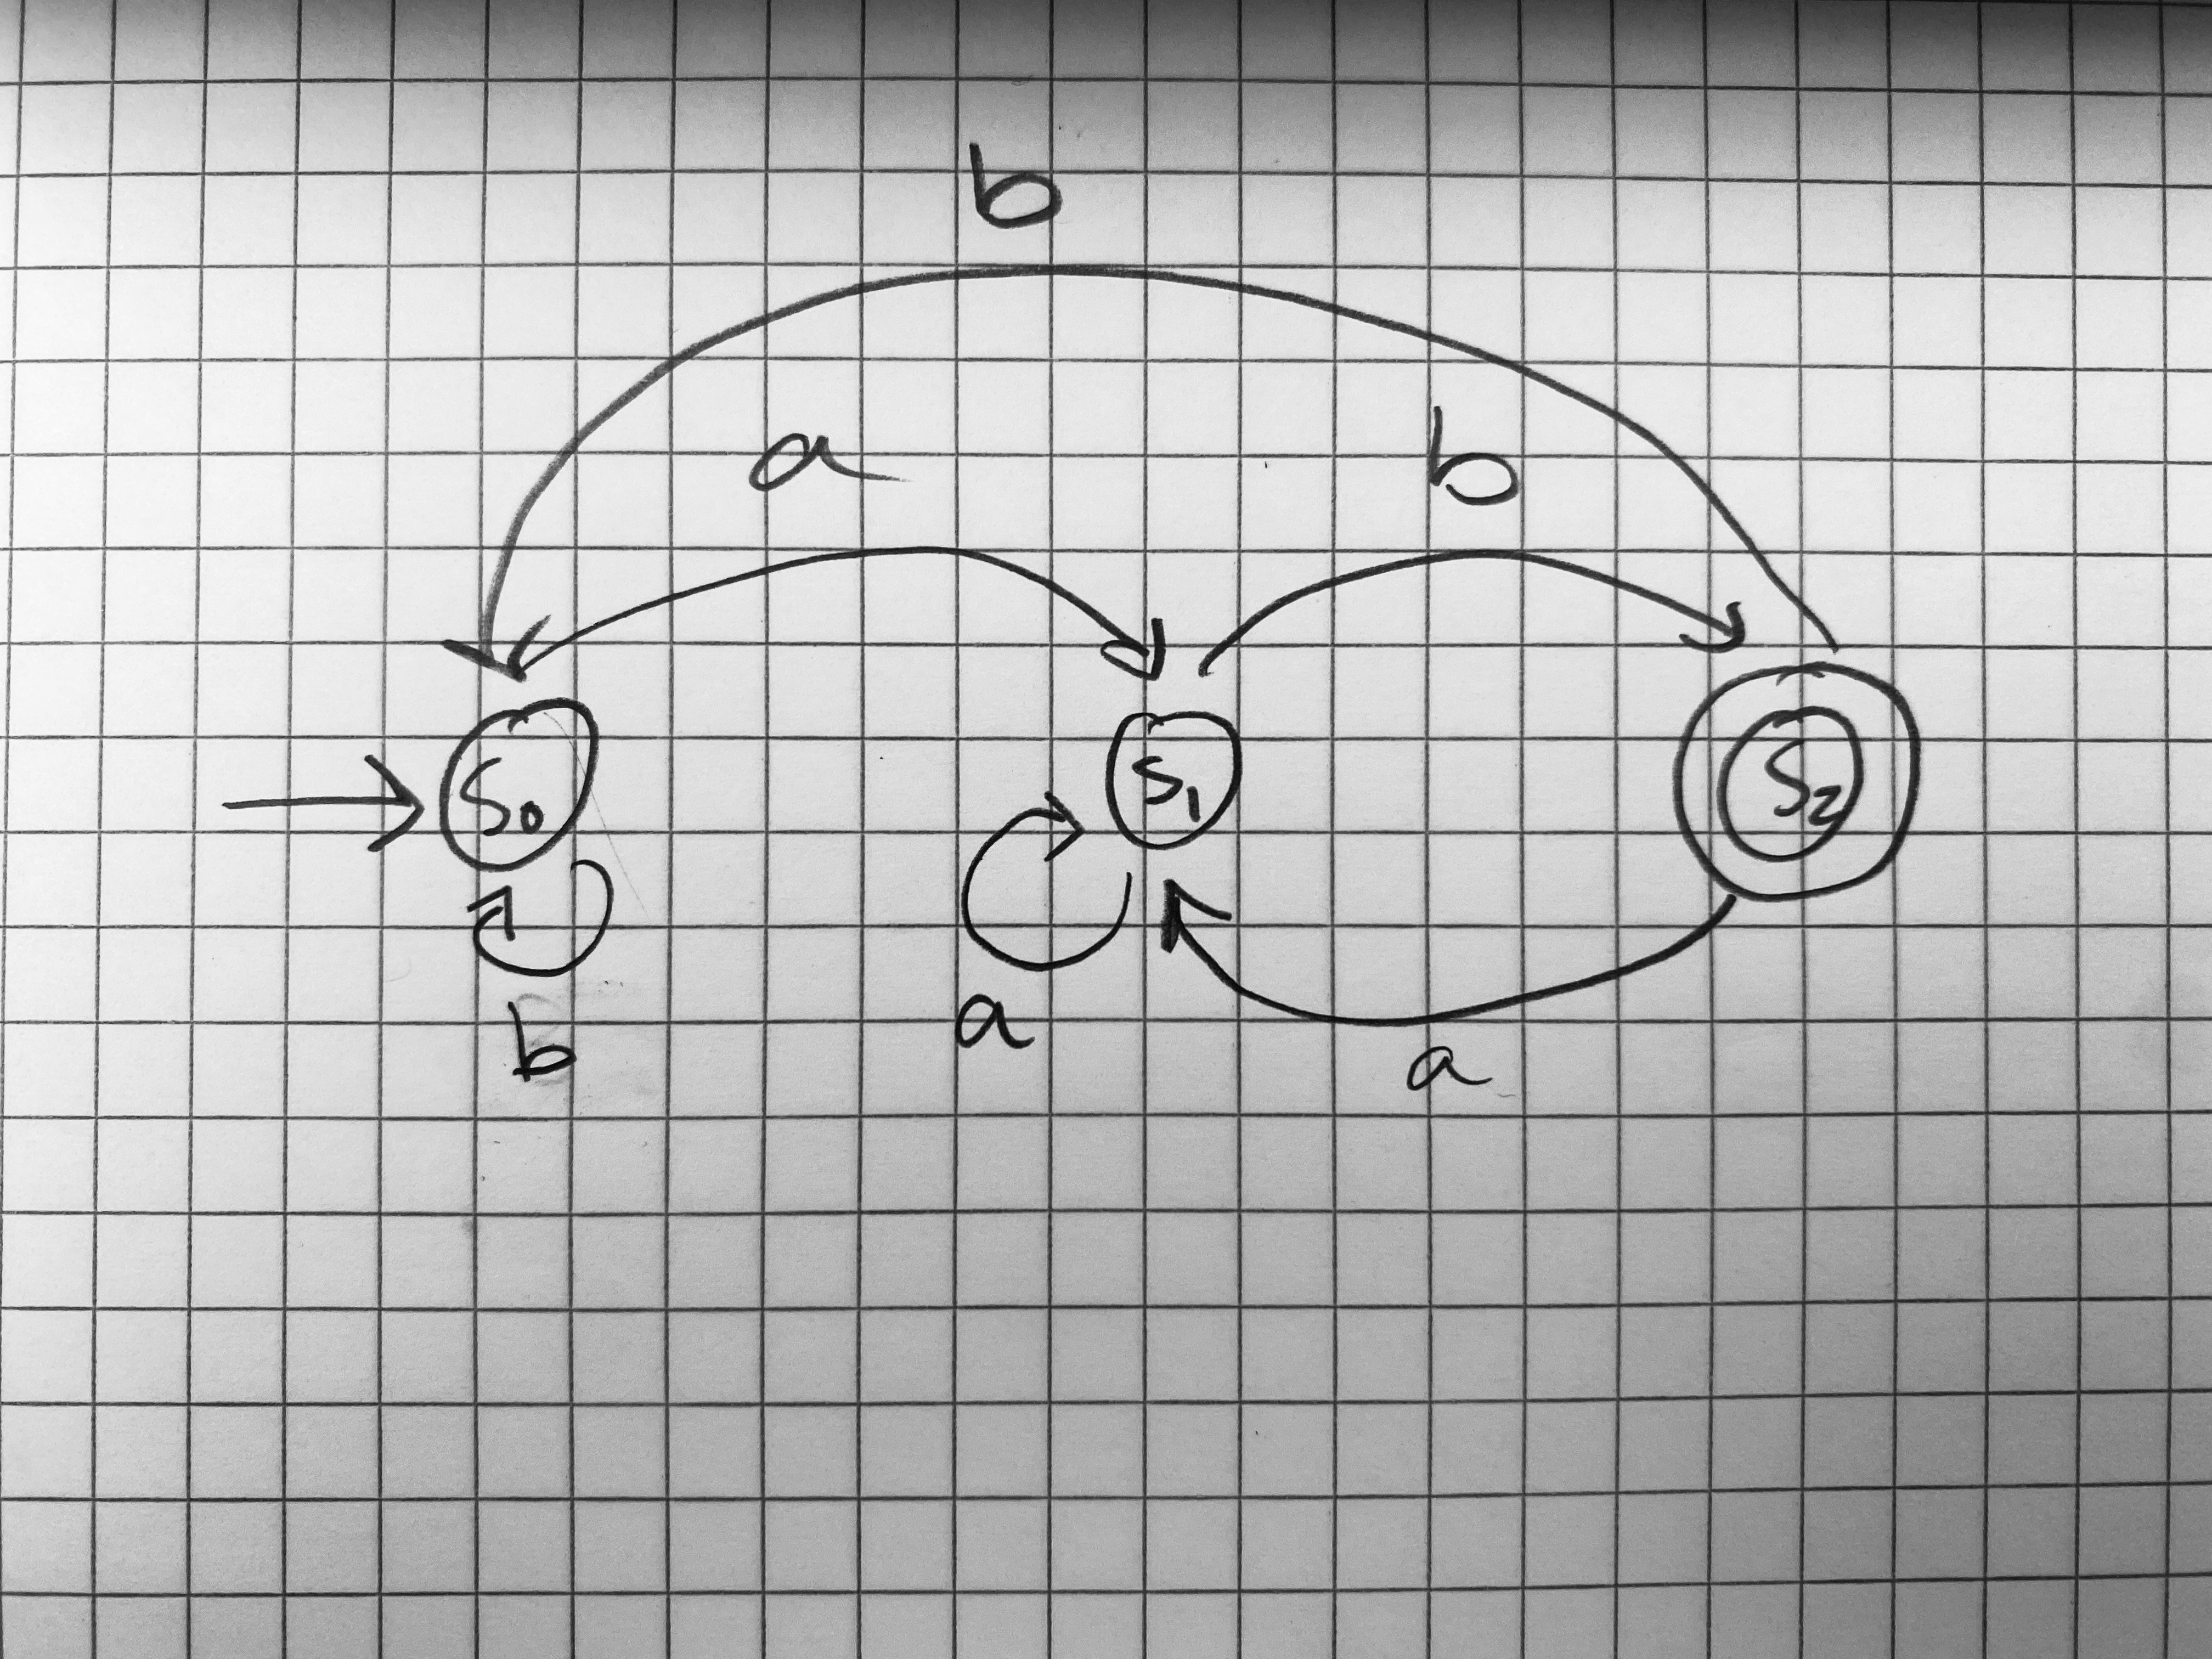 b
a b
S₀ S₁ S₂
b a a